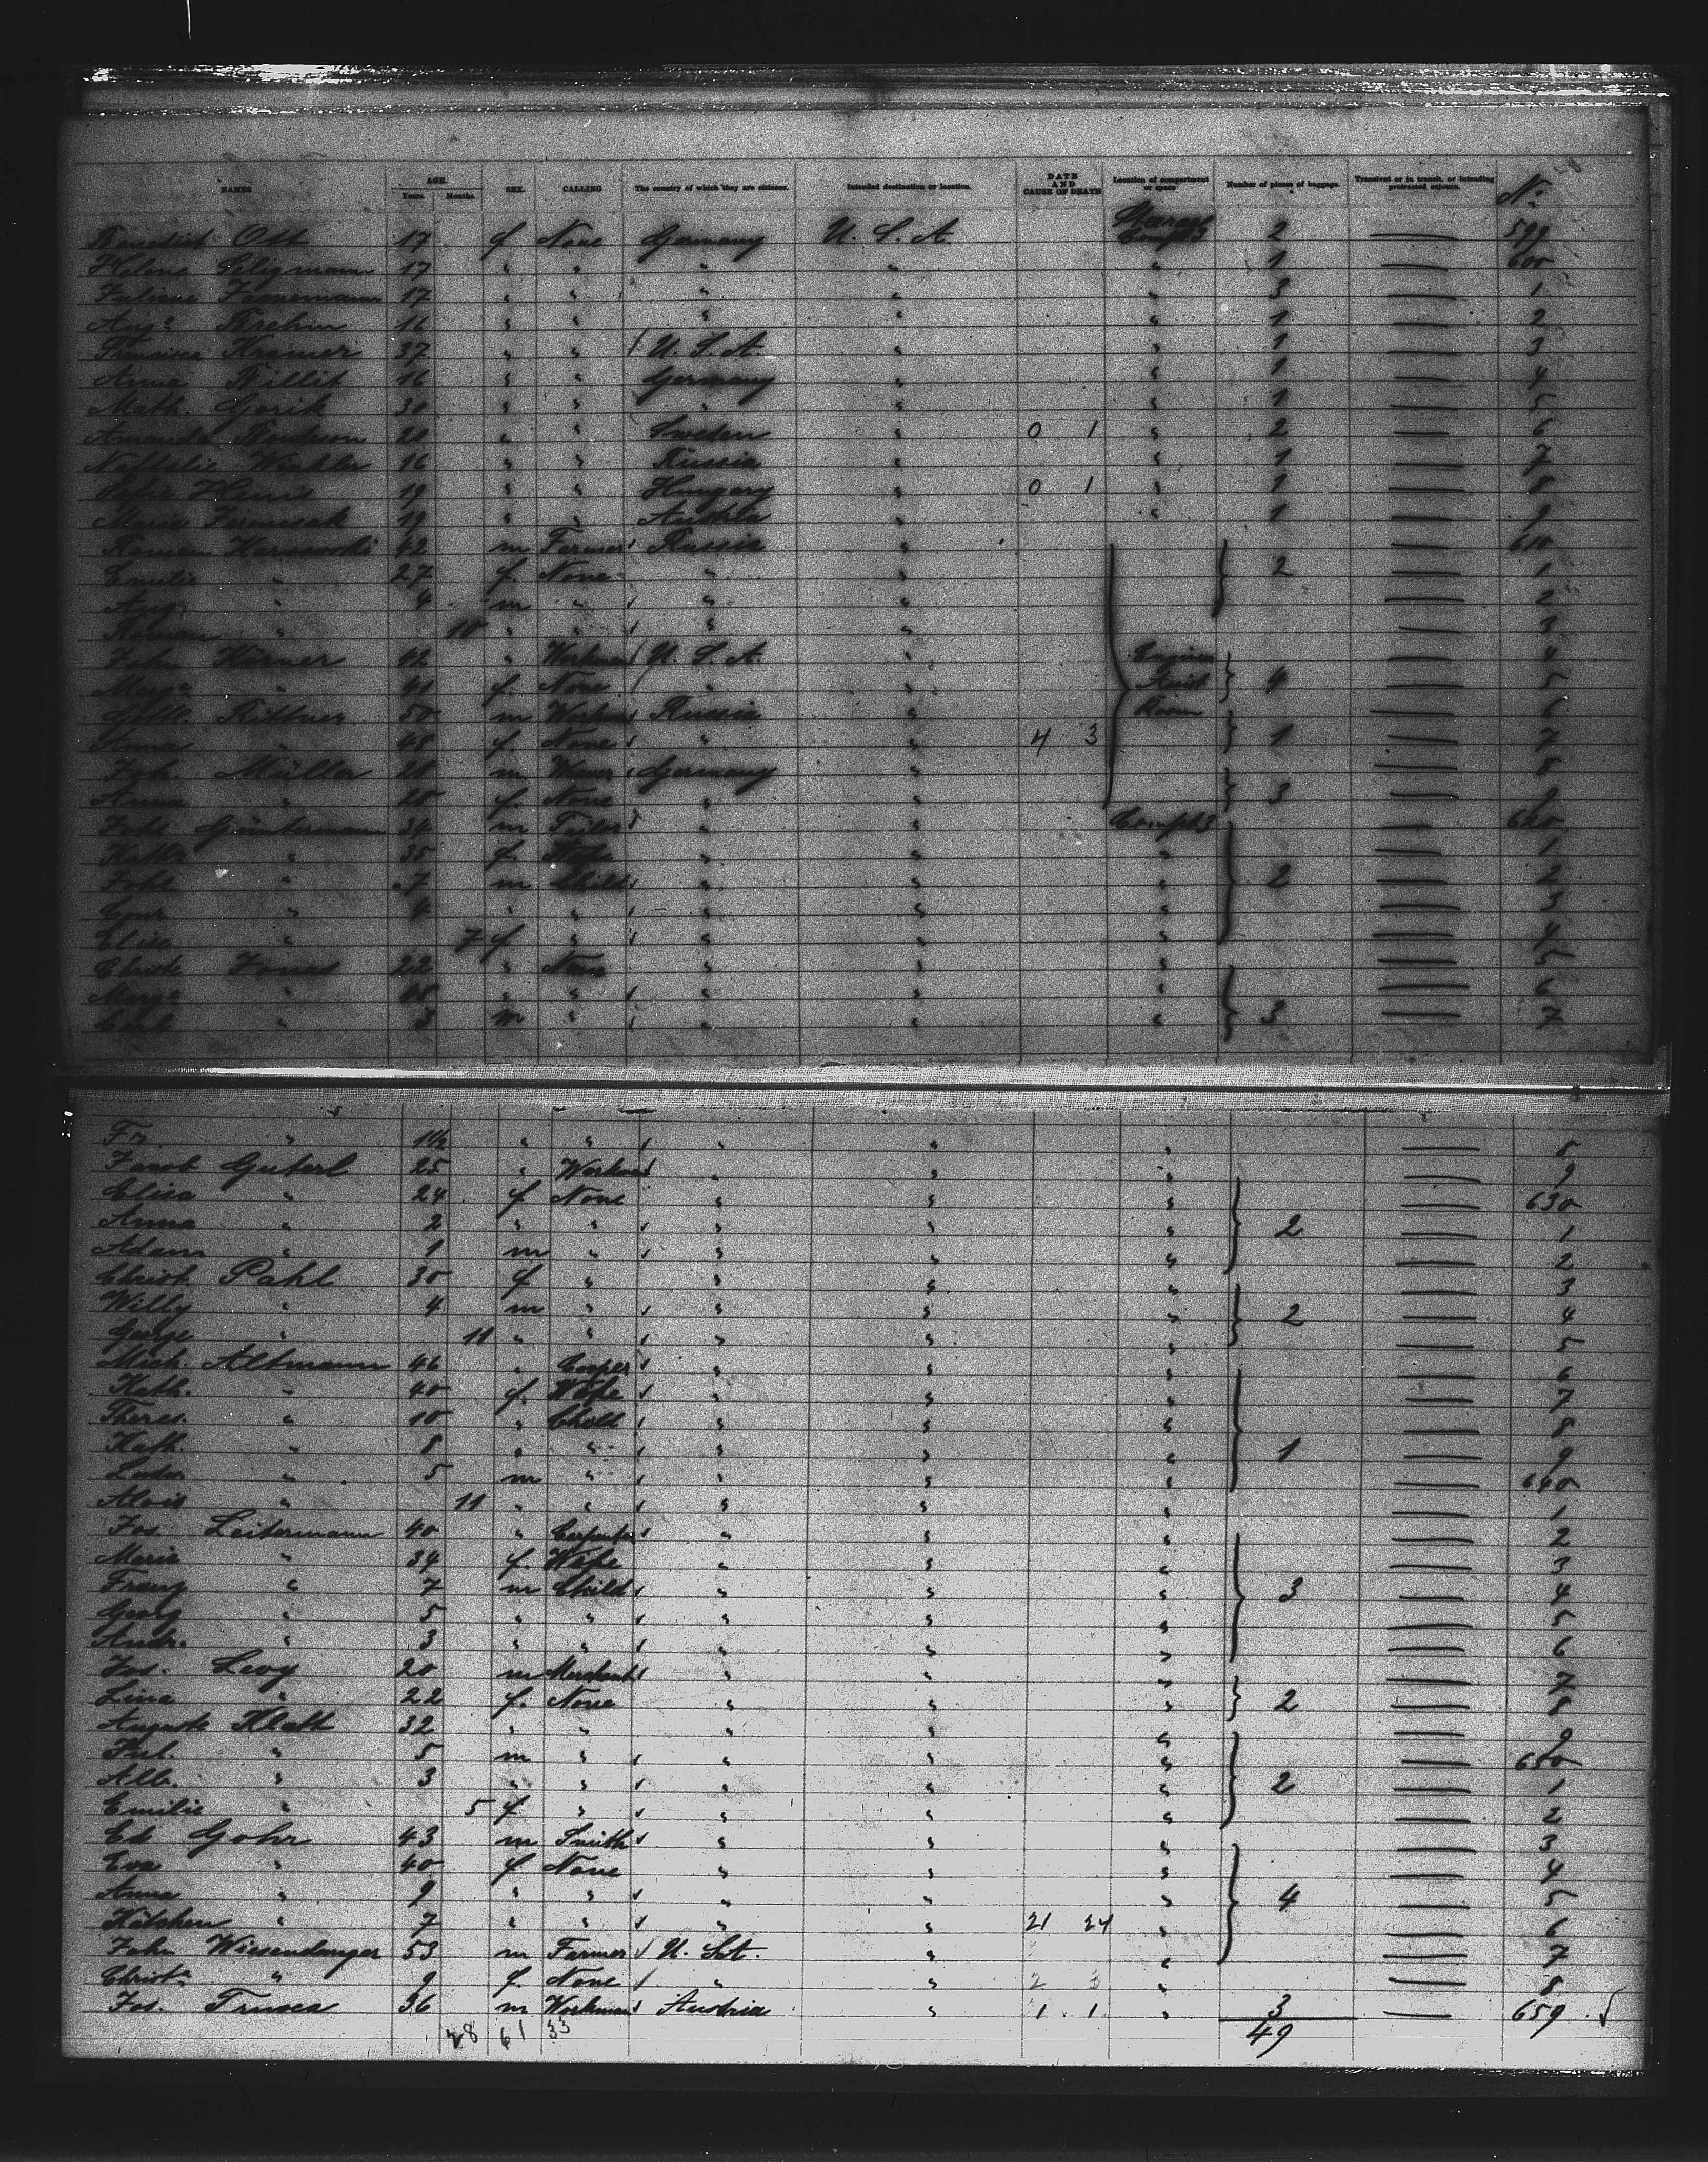 NAMES AGE. Years Months SEX. CALLING The country of which they are citizens. Intended destination or location. DATE AND CAUSE OF DEATH Location of compartment or space Number of pieces of baggage. Transient or in transit, or intending protracted sojourn. No
Benedict Ott 17 f None Germany U. S. A. Compt 3 2 — 599
Helene Seligmann 17 " " " " " 1 — 600
Juliane 17 " " " " " 3 — 1
Aug. Brehm 16 " " " " " 1 — 2
Francisca Kramer 37 " " U. S. A. " " 1 — 3
Anna Billit 16 " " Germany " " 1 — 4
Math. Gorik 30 " " " " " 1 — 5
Amanda 20 " " Sweden " 0 1 " 2 — 6
Naftalie Winkler 16 " " Russia " " 1 — 7
Sofie 19 " " Hungary " 0 1 " 1 — 8
Marie 19 " " Austria " " 1 — 9
Roman 42 m Farmer Russia " — 610
Emilie " 27 f. None " " 2 — 1
Aug. " 4 m " " " — 2
Roman " 10 " " " " — 3
John Körner 42 " Workman U. S. A. " — 4
Marg. " 41 f. None " " 4 — 5
Gottl. Rittner 50 m Workman Russia " Room — 6
Anna " 48 f. None " " 4 3 1 — 7
Joh. Müller 28 m Germany " — 8
Anna " 20 f. None " " 3 — 9
Johs Güntermann 34 m Tailor " " Compt 3 — 620
Kath. " 35 f. Wife " " " — 1
Johs " 7 m Child " " " 2 — 2
Conr " 4 " " " " " — 3
Elisa " 7 f " " " " — 4
Christe Jonas 22 " None " " " — 5
Marg. " " " " " " — 6
Carl " 3 m " " " " 3 — 7
Fr. " 1½ " " " " " — 8
Jacob Guterl 25 " Workman " " " — 9
Elisa " 24 f None " " " — 630
Anna " 2 " " " " " 2 — 1
Adam " 1 m " " " " — 2
Christ. Pahl 30 f " " " " — 3
Willy " 4 m " " " " 2 — 4
George " 11 " " " " " — 5
Mich. Altmann 46 " Cooper " " " — 6
Kath. " 40 f. Wife " " " — 7
Theres. " 10 " Child " " " — 8
Kath. " 8 " " " " " 1 — 9
Ludw. " 5 m " " " " — 640
Alois " 11 " " " " " — 1
Jos. Leitermann 40 " Carpenter " " " — 2
Maria " 34 f. Wife " " " — 3
Franz " 7 m Child " " " 3 — 4
Georg " 5 " " " " " — 5
Andr. " 3 " " " " " — 6
Jos. Levy 20 m Merchant " " " — 7
Lina " 22 f. None " " " 2 — 8
Auguste Klatt 32 " " " " " — 9
Jul. " 5 m " " " " — 650
Alb. " 3 " " " " " 2 — 1
Emilie " 5 f " " " " — 2
Ed. Gohr 43 m Smith " " " — 3
Eva " 40 f None " " " — 4
Anna " 9 " " " " " 4 — 5
Kätchen " 7 " " " " 21 24 " — 6
John Wiesendanger 53 m Farmer U. St. " " — 7
Christe " 9 f. None " " 2 3 " — 8
Jos. Trusca 36 m Workman Austria " 1 1 " 3 — 659
28 61 33 49